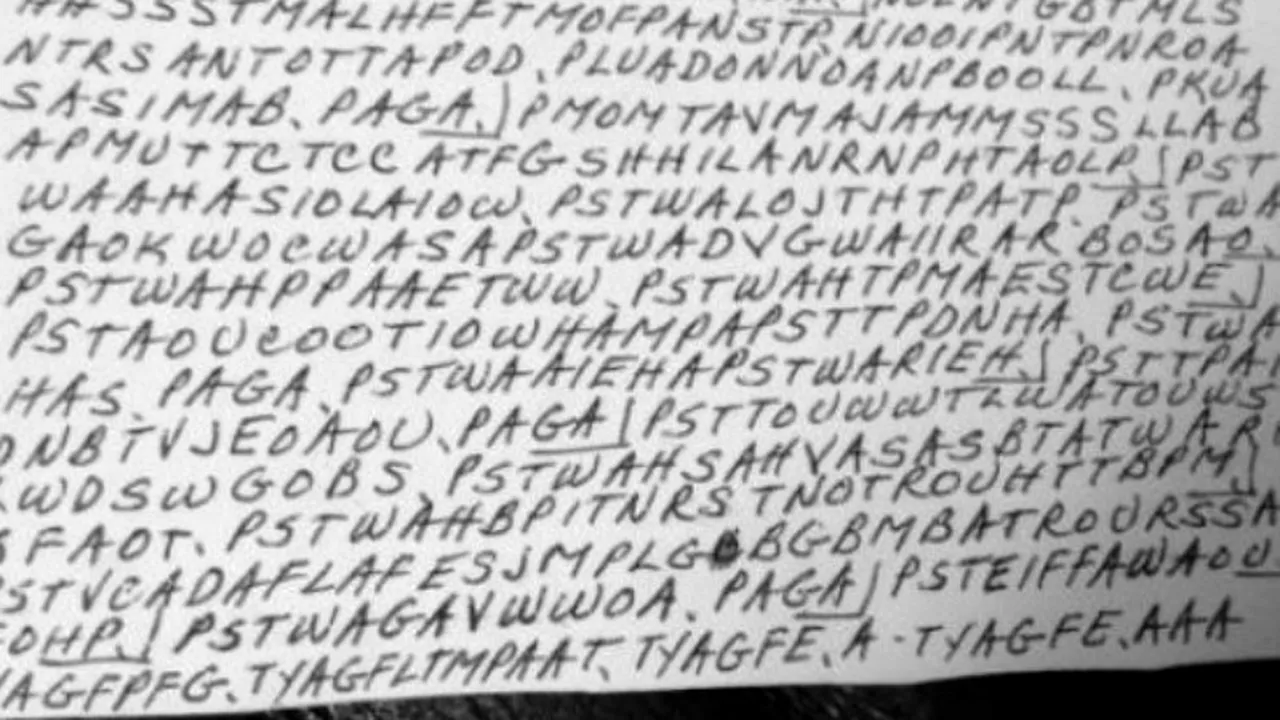 HHSSSTMALHFFTMOFPANSTP,
NTRS ANTOTTAPOD, PLUADONNDANPBOOLL, PKUA
SASIMAB, PAGA, PMOMTAVMAJAMMSSSLLAB
APMUTTCTCC ATFGSHHILANRNPHTAOLP, PST
WAAHASIOLAIOW, PSTWALOJTHTPATP. PSTWA
GAOKWOCWASAPSTWADVGWAIIRAR BOSAO,
PSTWAHPPAAETWW, PSTWAHTPMAESTCWE
PSTAOUCOOTIOWHAMPAPSTTPDNHA, PSTWA
HAS, PAGA, PSTWAAIEHAPSTWARIEH, PSTTPA
DNBTVJEOAOU, PAGA PSTTOUWWTLWATOUWS
WDSWGOBS, PSTWAHSAHVASASBTATWAR
SFAOT, PSTWAHBPITNRS TNOTROUHTTBPM
STVCADAFLAFESJMPLG BGBMBATROURSSA
OHP, PSTWAGAVWWOA, PAGA PSTEIFFAWAOU
AGFPFG, TYAGFLTMPAAT, TYAGFE, A-TYAGFE, AAA